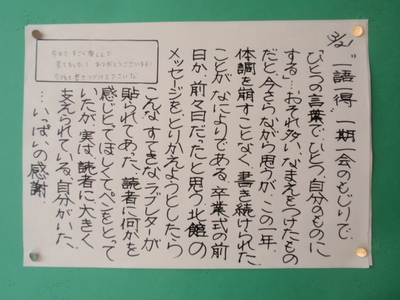 3/21
"一語一得" 一期一会のもじりで、
"ひとつの言葉で、ひとつ、自分のものに
する"…おそれ多いなまえをつけたもの
だと今さらながら思うが、この一年、
体調を崩すことなく、書き続けられた
ことがなによりである。卒業式の前
日か、前々日だったと思う。北館の
メッセージをとりかえようとしたら
こんなすてきなラブレターが
貼られてあった。読者に何かを
感じとってほしくてペンをとって
いたが、実は、読者に大きく
支えられている自分がいた。
…いっぱいの感謝
ありがとうございます!